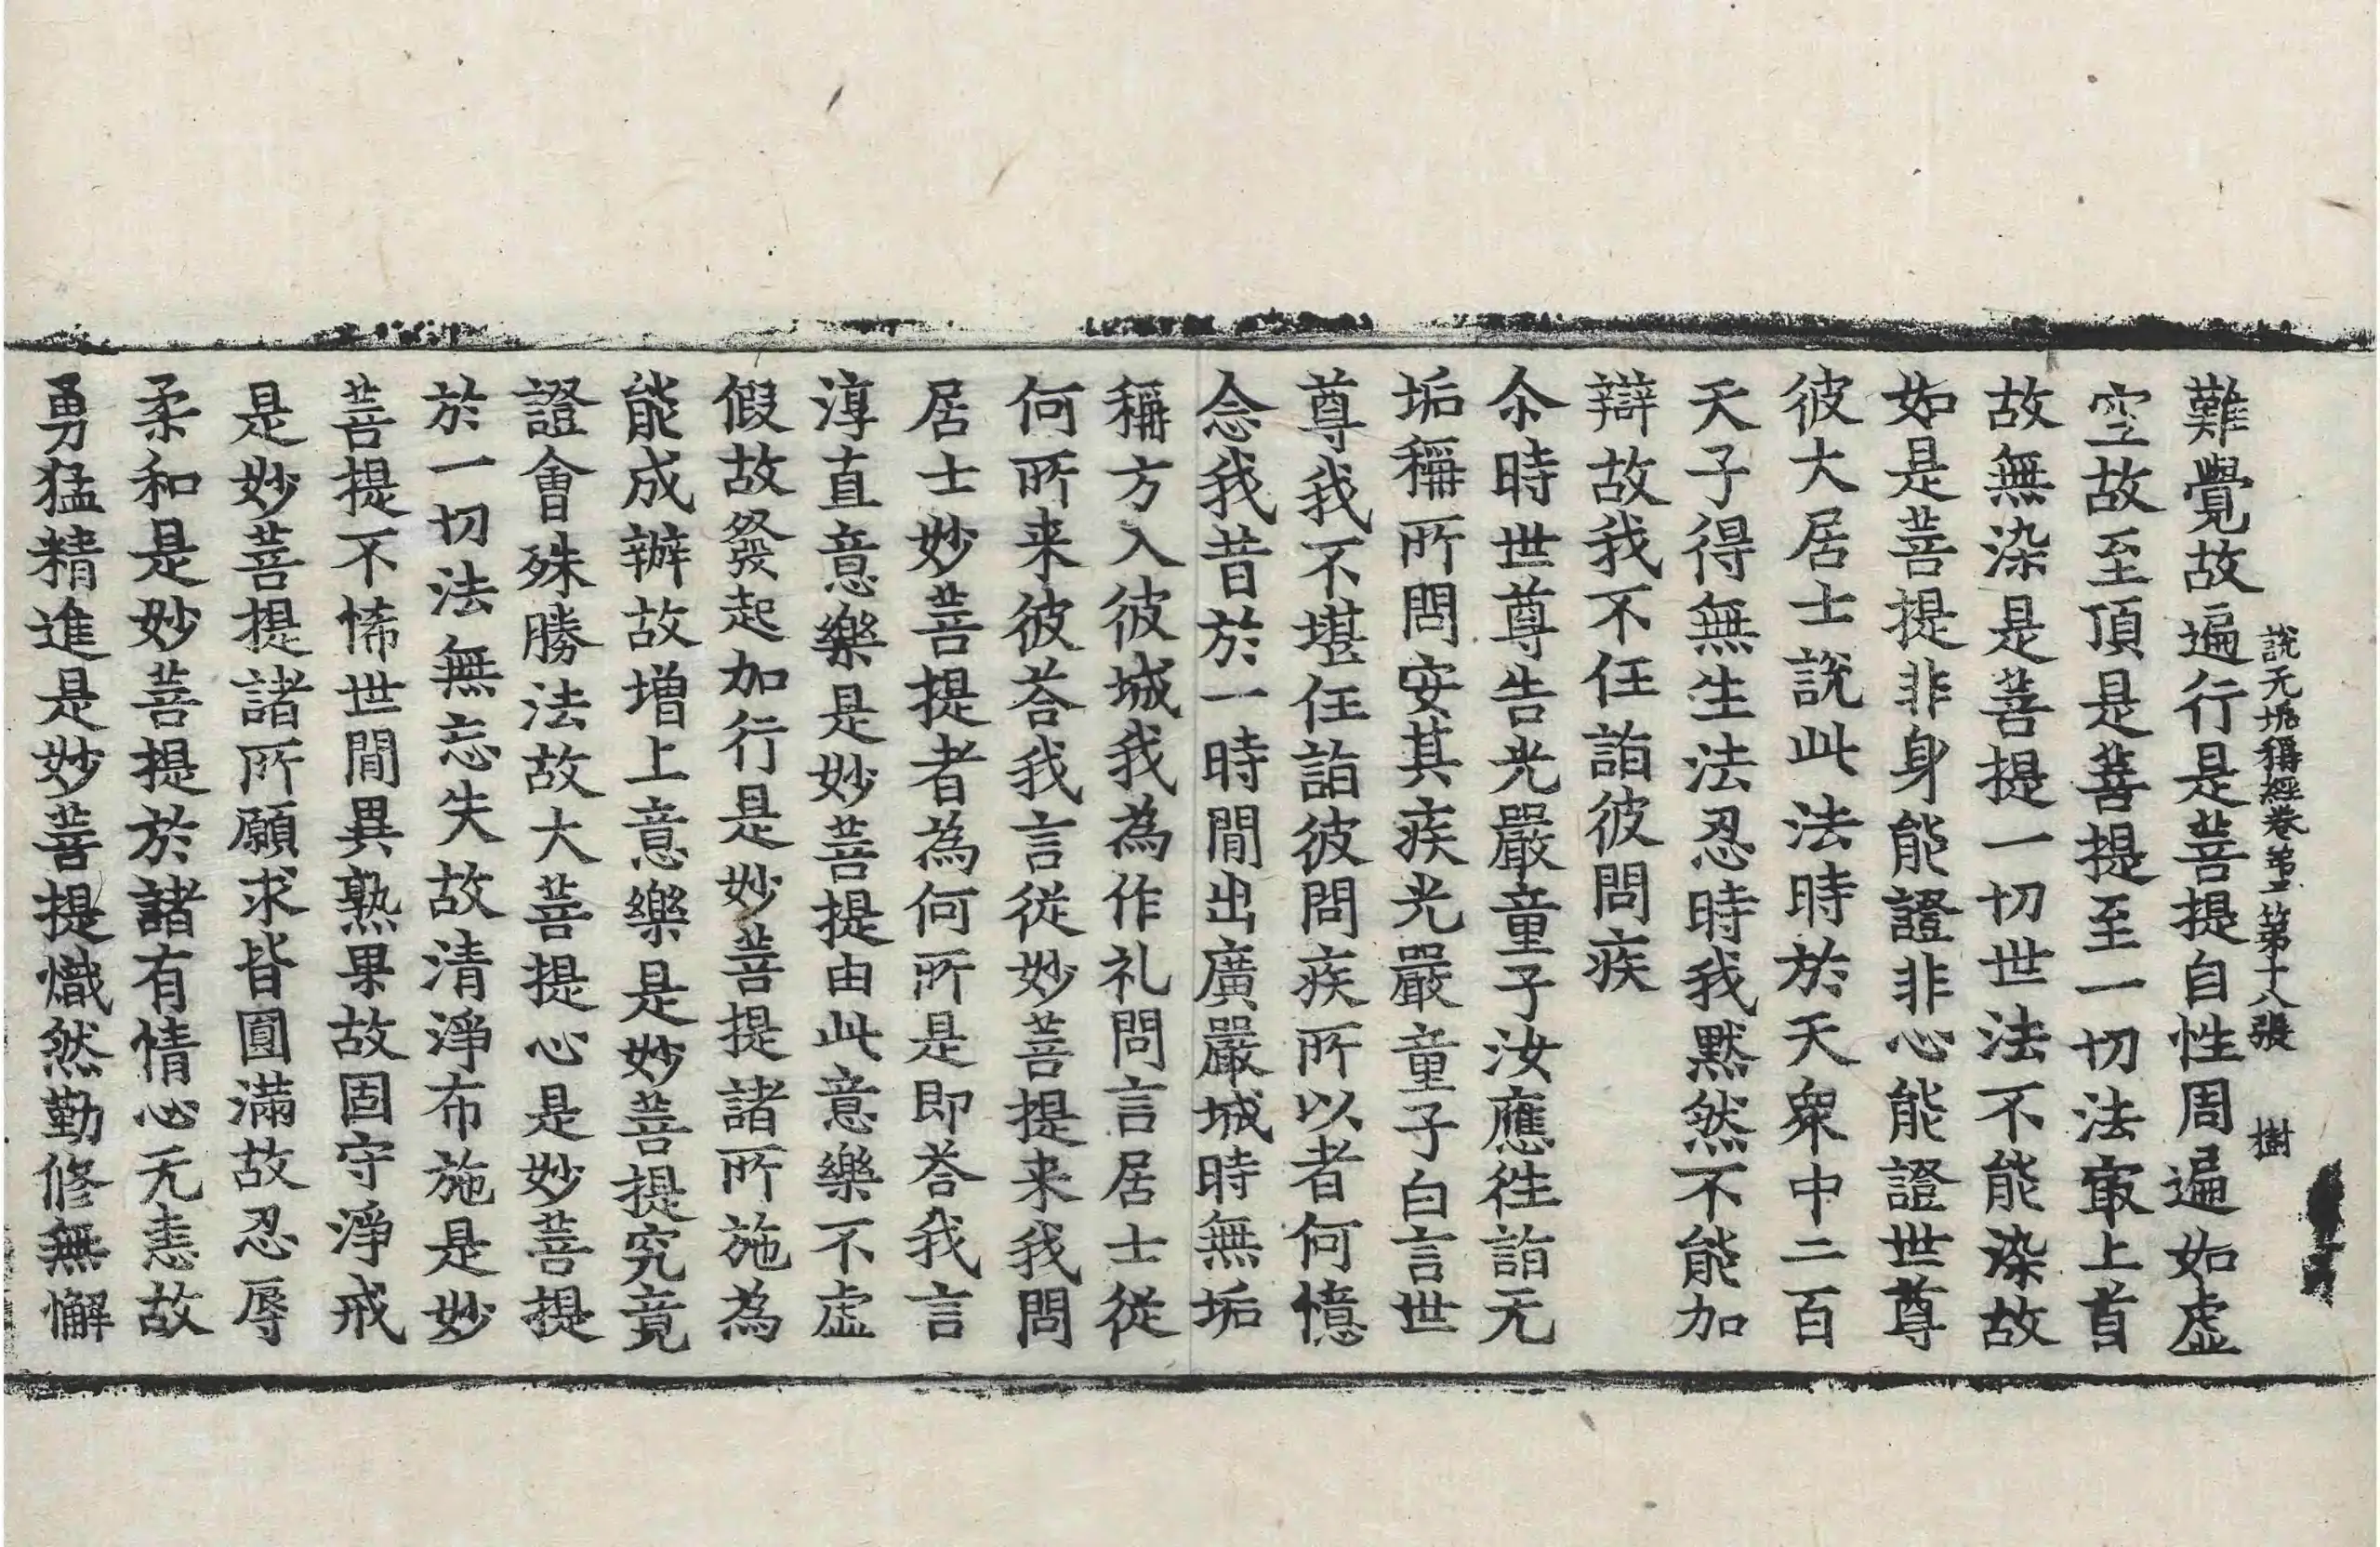 說无垢稱經卷第二 第十八張 樹
難覺故遍行是菩提自性周遍如虛
空故至頂是菩提至一切法㝡上首
故無染是菩提一切世法不能染故
如是菩提非身能證非心能證世尊
彼大居士說此法時於天衆中二百
天子得無生法忍時我黙然不能加
辯故我不任詣彼問疾
尒時世尊告光嚴童子汝應往詣无
垢稱所問安其疾光嚴童子白言世
尊我不堪任詣彼問疾所以者何憶
念我昔於一時間出廣嚴城時無垢
稱方入彼城我為作礼問言居士從
何所来彼荅我言從妙菩提来我問
居士妙菩提者為何所是即荅我言
淳直意樂是妙菩提由此意樂不虛
假故發起加行是妙菩提諸所施為
能成辦故增上意樂是妙菩提究竟
證會殊勝法故大菩提心是妙菩提
於一切法無忘失故清淨布施是妙
菩提不悕世間異熟果故固守淨戒
是妙菩提諸所願求皆圓滿故忍辱
柔和是妙菩提於諸有情心无恚故
勇猛精進是妙菩提熾然勤修無懈